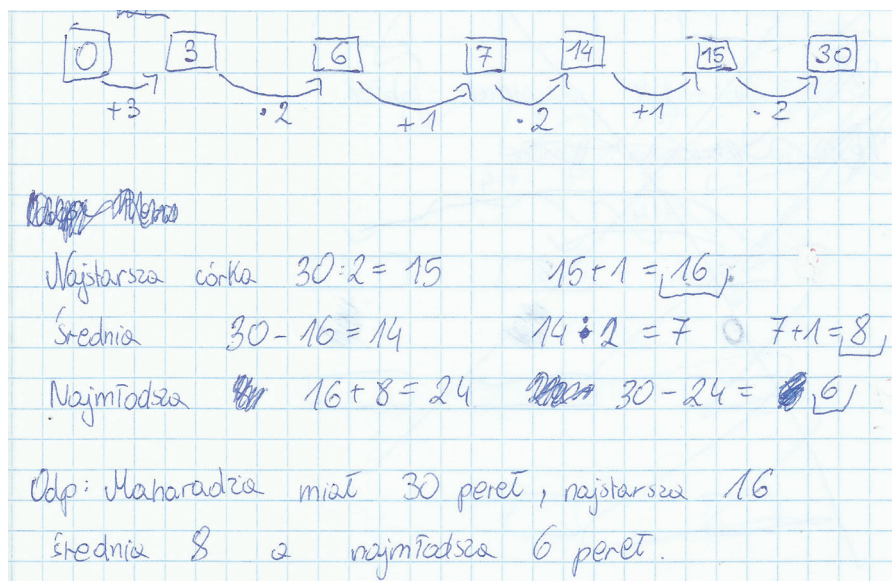 0 3 6 7 14 15 30
+3 ·2 +1 ·2 +1 ·2
Najstarsza córka 30:2= 15 15+1 = 16
Średnia 30-16=14 14:2 = 7 7+1=8
Najmłodsza 16+8=24 30-24= 6
Odp: Maharadża miał 30 pereł, najstarsza 16
średnia 8 a najmłodsza 6 pereł.